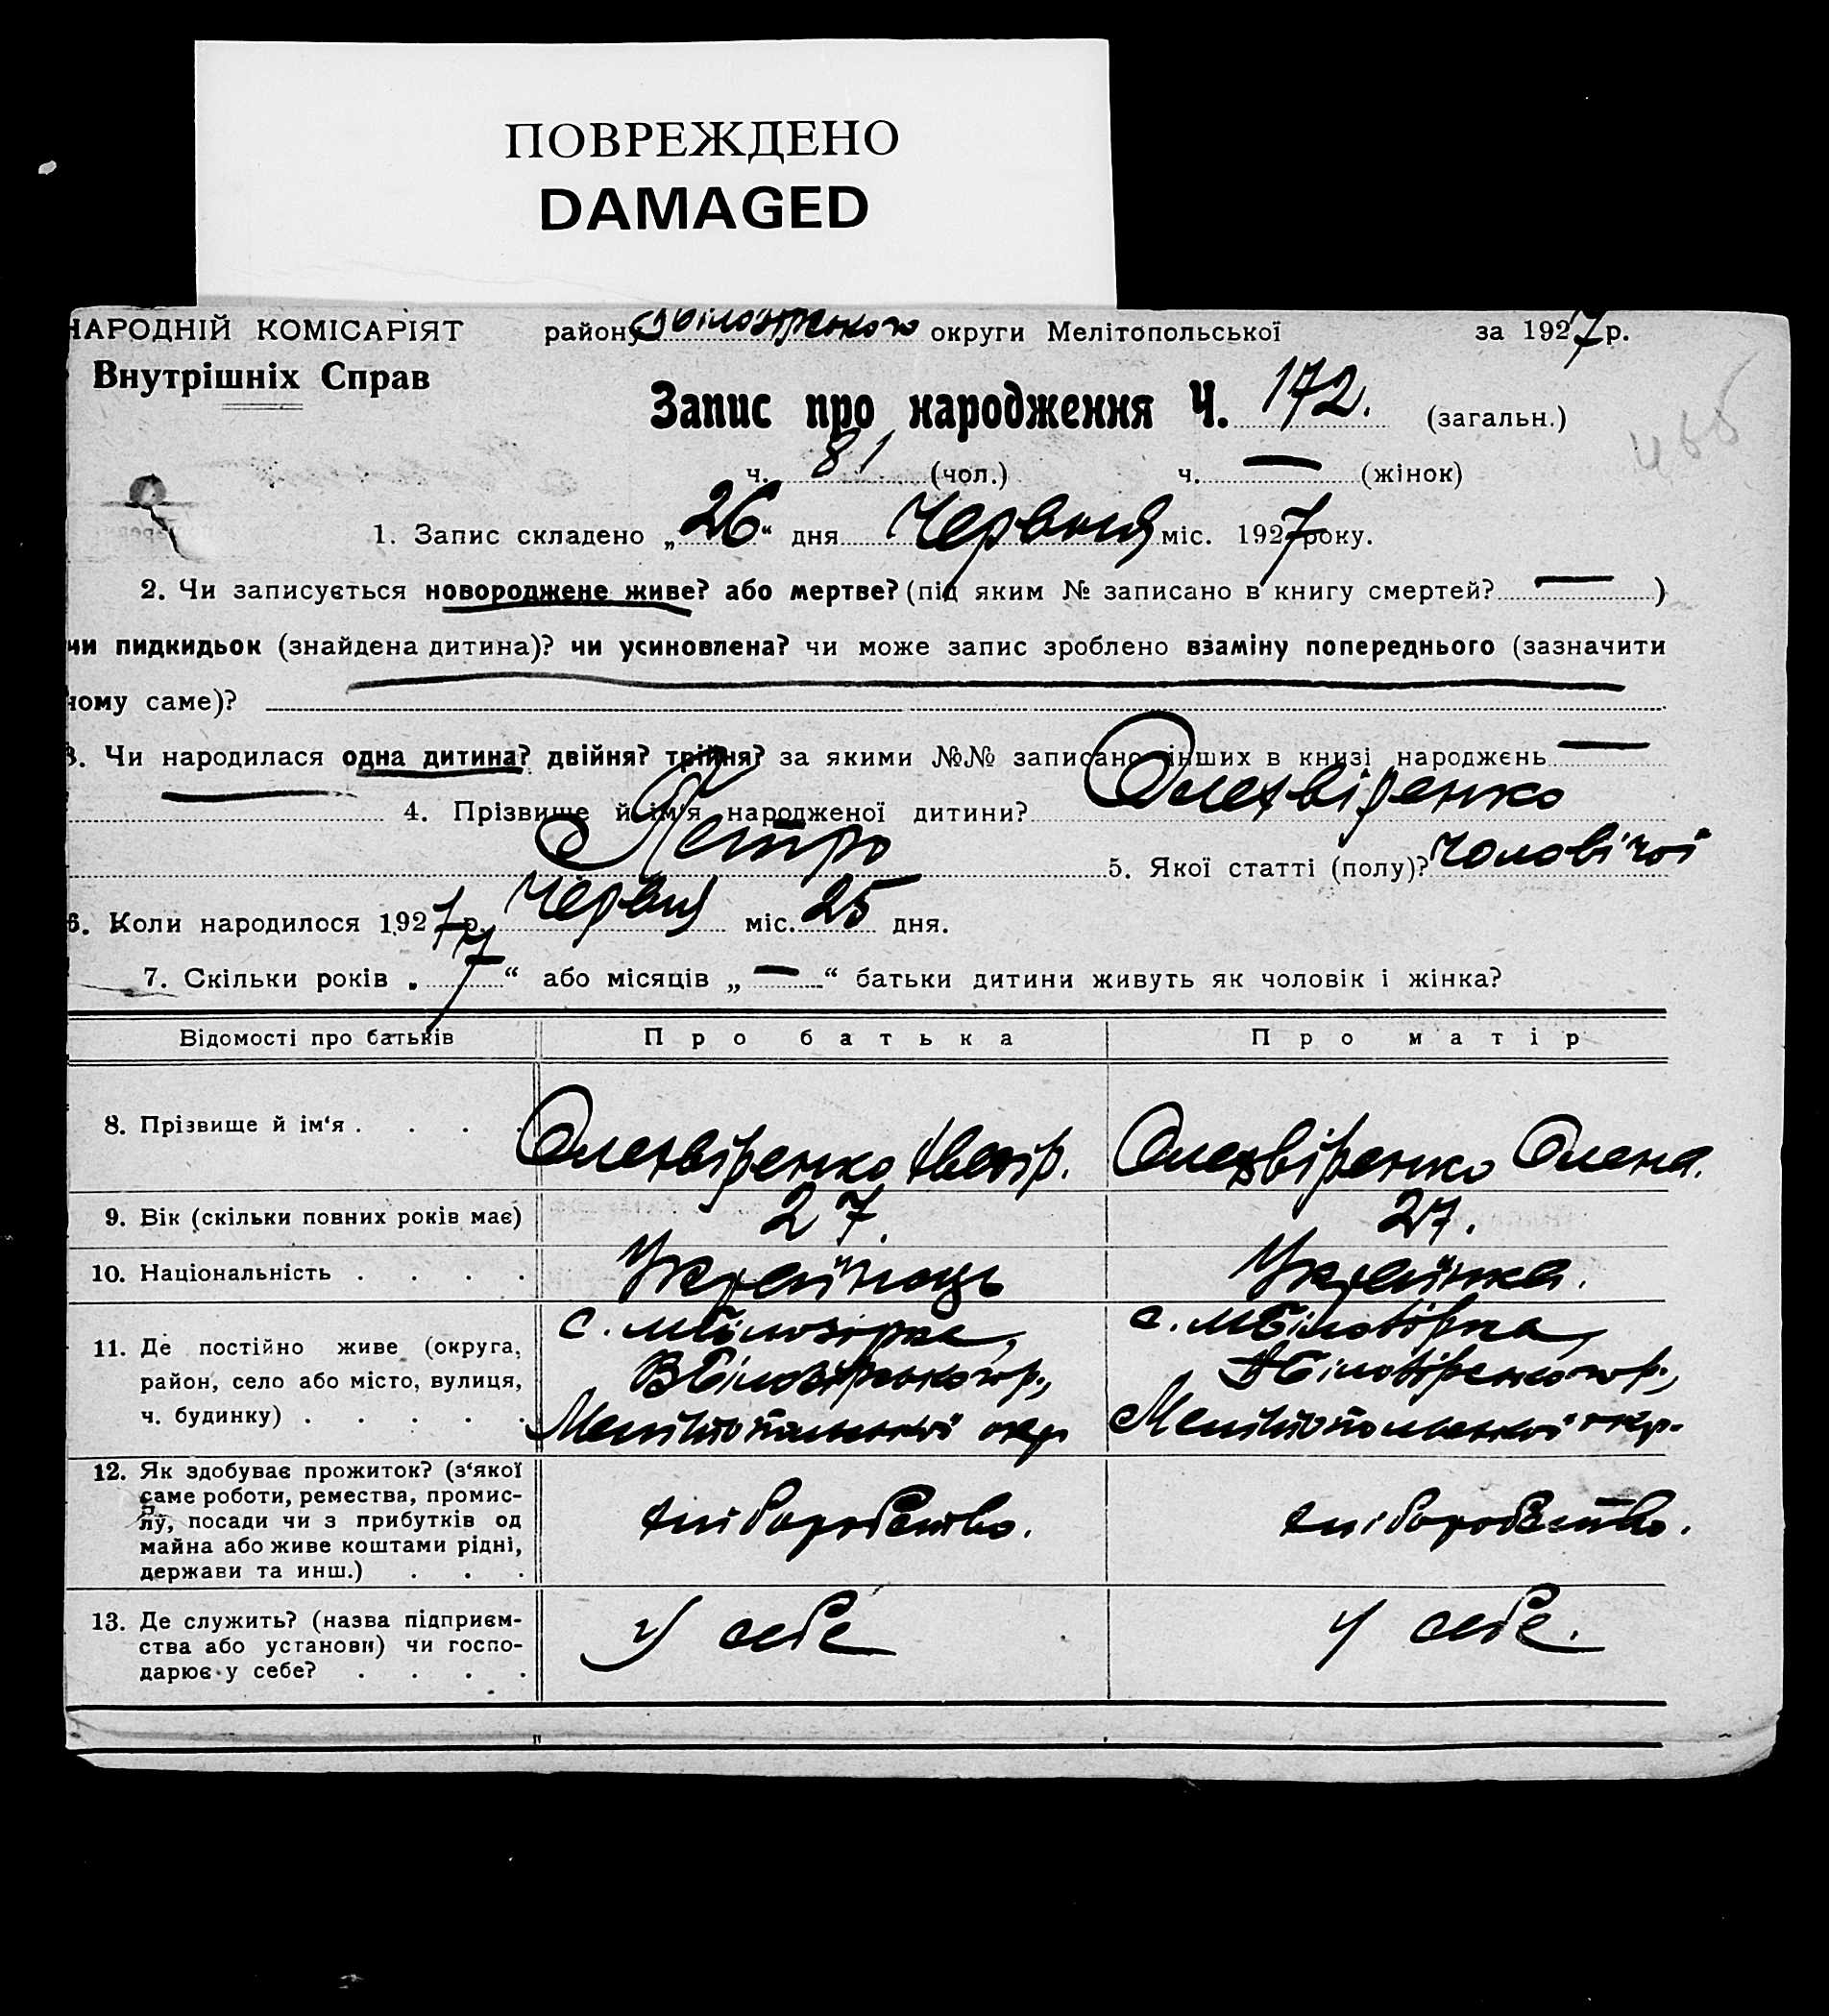 ПОВРЕЖДЕНО
DAMAGED
НАРОДНІЙ КОМІСАРІЯТ району округи Мелітопольської за 1927 р.
Внутрішніх Справ
Запис про народження Ч. 172. (загальн.)
ч. 81 (чол.) ч. — (жінок)
1. Запис складено „26“ дня Червня міс. 1927 року.
2. Чи записується новороджене живе? або мертве? (під яким № записано в книгу смертей? — )
чи пидкидьок (знайдена дитина)? чи усиновлена? чи може запис зроблено взаміну попереднього (зазначити
чому саме)?
3. Чи народилася одна дитина? двійня? трійня? за якими №№ записано інших в книзі народжєнь —
4. Прізвище й ім'я народженої дитини?
Петро 5. Якої статті (полу)? чоловічої
6. Коли народилося 1927 р. Червня міс. 25 дня.
7. Скільки років „7“ або місяців „—“ батьки дитини живуть як чоловік і жінка?
Відомості про батьків Про батька Про матір
8. Прізвище й ім‘я . . . . Олена.
9. Вік (скільки повних років має) 27. 27.
10. Національність . . . . Українець Українка.
11. Де постійно живе (округа, с. с.
район, село або місто, вулиця,
ч. будинку) . . . . . Мелітопольської окр Мелітопольської окр.
12. Як здобуває прожиток? (з‘якої
саме роботи, ремества, промис-
лу, посади чи з прибутків од хліборобство. хліборобство.
майна або живе коштами рідні,
держави та инш.) . . .
13. Де служить? (назва підприєм-
ства або установи) чи госпо- У себе У себе.
дарює у себе? . . . .